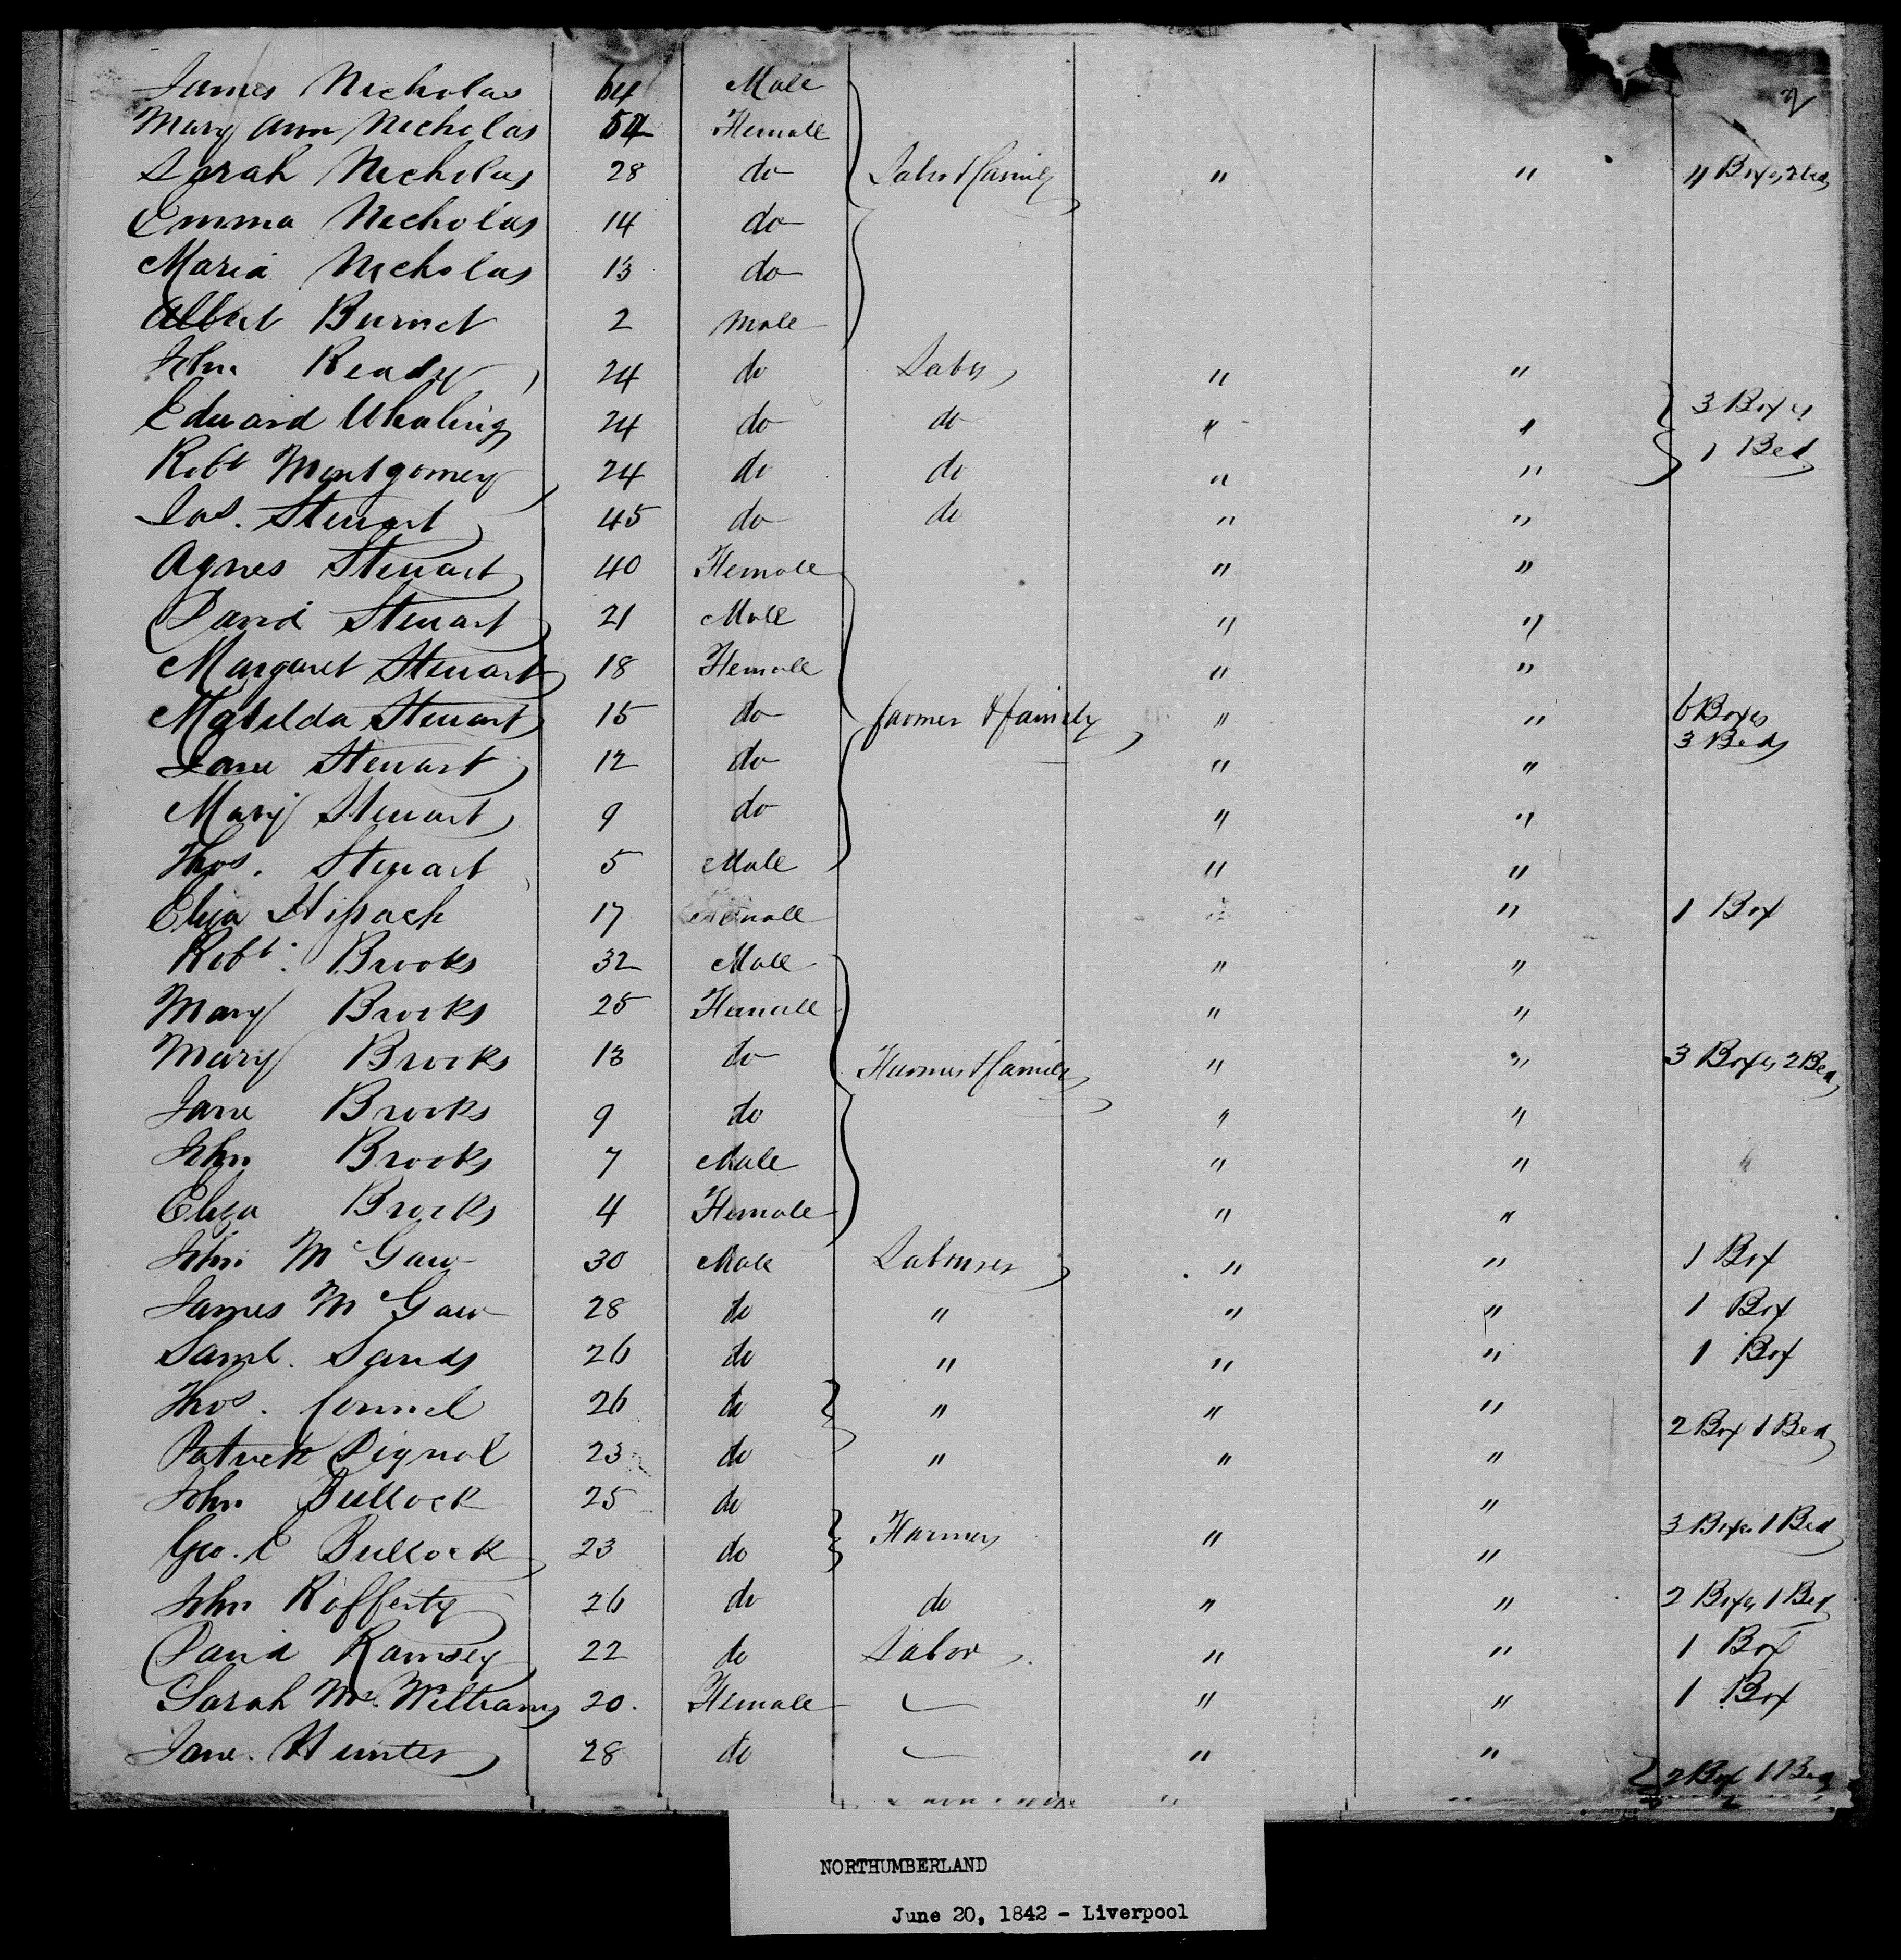 2
James Nicholas 64 Male
Mary Ann Nicholas 54 Female
Sarah Nicholas 28 do Labor & family " " 4 Boxes 2 beds
Emma Nicholas 14 do
Maria Nicholas 13 do
Albert Burnet 2 Male
John Ready 24 do Labor " "
Edward Whaling 24 do do " " 3 Boxes
1 Bed
Robt Montgomery 24 do do " "
Jas. Stewart 45 do do " "
Agnes Stewart 40 Female " "
David Stewart 21 Male " "
Margaret Stewart 18 Female " "
Matilda Stewart 15 do farmer & family " " 6 Boxes
3 Beds
Jane Stewart 12 do " "
Mary Stewart 9 do " "
Thos. Stewart 5 Male " "
Eliza 17 Female " " 1 Box
Robt. Brooks 32 Male " "
Mary Brooks 25 Female " "
Mary Brooks 13 do Farmer & family " " 3 Boxes 2 Beds
Jane Brooks 9 do " "
John Brooks 7 Male " "
Eliza Brooks 4 Female " "
John McGaw 30 Male Labourer " " 1 Box
James McGaw 28 do " " " 1 Box
Saml. Sands 26 do " " " 1 Box
Thos. Connel 26 do " " "
2 Box 1 Bed
Patrick Dignal 23 do " " "
John Bullock 25 do "
Farmers " 3 Boxes 1 Bed
Geo. C Bullock 23 do "
John Rafferty 26 do do " " 2 Boxes 1 Bed
David Ramsey 22 do Labor " " 1 Box
Sarah McWilliams 20. Female " " 1 Box
Jane Hunter 28 do " "
2 Box 1 Bed
NORTHUMBERLAND
June 20, 1842 - Liverpool